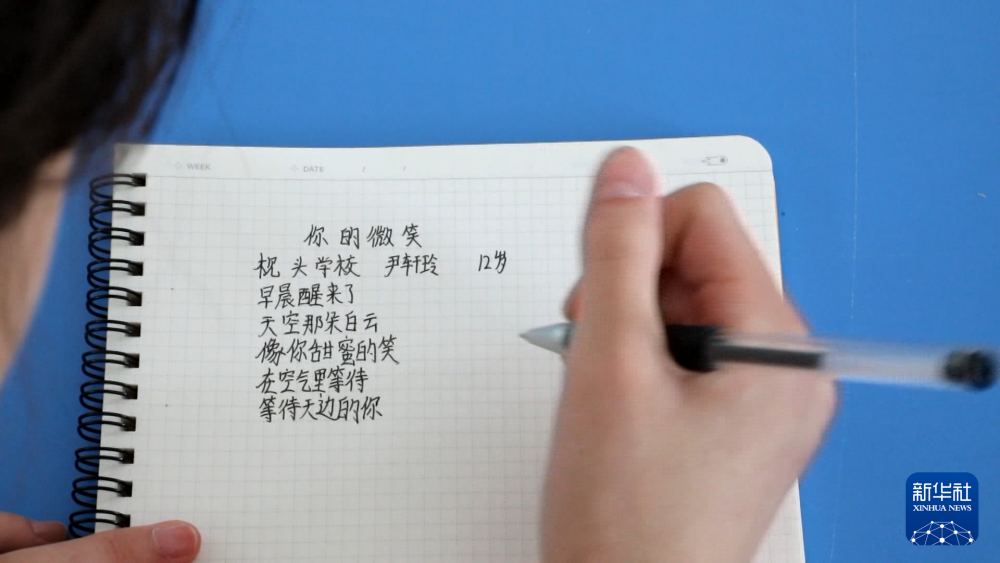 WEEK DATE / /
你的微笑
枕头学校 尹轩玲 12岁
早晨醒来了
天空那朵白云
像你甜蜜的笑
在空气里等待
等待天边的你
新华社
XINHUA NEWS